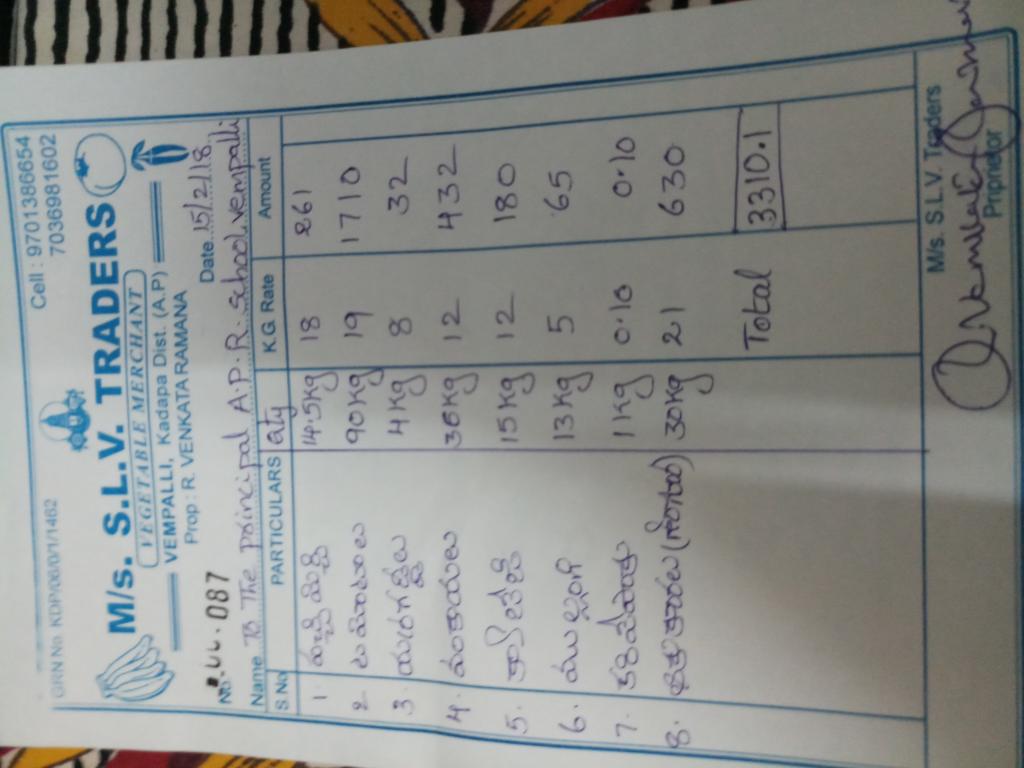 GRN No. KDP/06/0/1/1462
Cell : 9701386654
7036981602
M/s. S.L.V. TRADERS
VEGETABLE MERCHANT
VEMPALLI, Kadapa Dist. (A.P)
Prop : R. VENKATA RAMANA
No. 087
Date 15/2/18
Name To The principal A.P.R. School, vempalli
S.No PARTICULARS Qty K.G. Rate Amount
1. పచ్చి మిర్చి 14.5Kg 18 261
2 టమాటాలు 90Kg 19 1710
3. మునగ 4Kg 8 32
4. వంకాయలు 36Kg 12 432
5. 15Kg 12 180
6. ముల్లంగి 13Kg 5 65
7. కరివేపాకు 1Kg 0.10 0.10
8. 30Kg 21 630
Total 3310.1
M/s. S.L.V. Traders
Priprietor